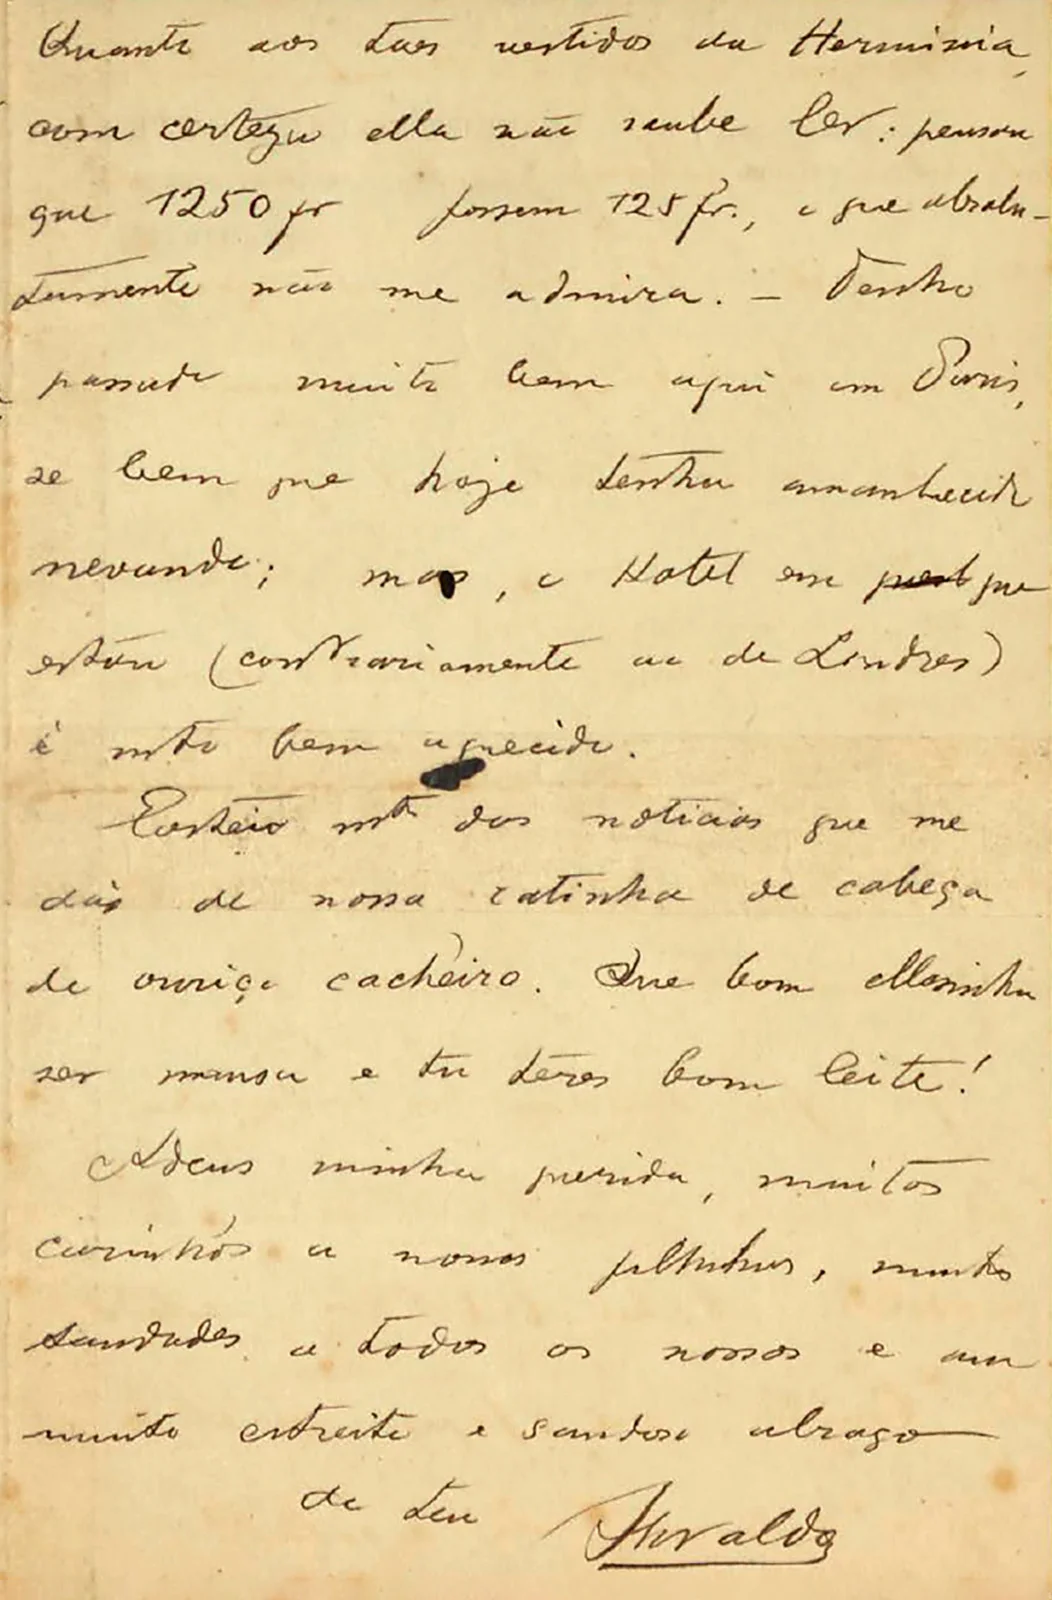 Quanto aos taes vestidos da Herminia,
com certeza ella não soube ler: pensou
que 1250 fr fossem 125 fr., o que absolu-
tamente não me admira. – Tenho
passado muito bem aqui em Paris,
se bem que hoje tenha amanhecido
nevando; mas, o Hotel em que
estou (contrariamente ao de Londres)
é mto bem aquecido.
Gostei mto das noticias que me
dás de nossa ratinha de cabeça
de ouriço cacheiro. Que bom ella
ser mansa e tu teres bom leite!
Adeus minha querida, muitos
carinhos a nossos filhinhos, muitas
saudades a todos os nossos e um
muito estreito e saudoso abraço
de teu